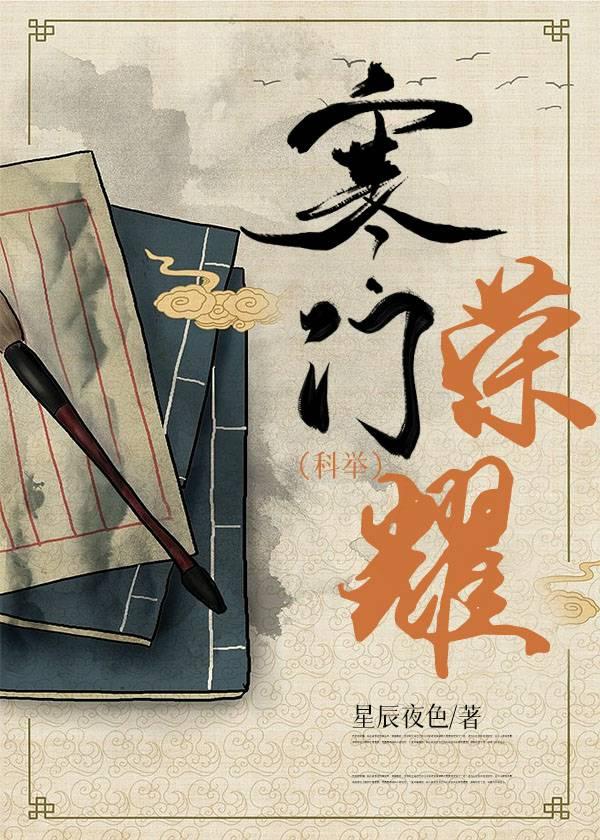 寒门
荣耀
（科举）
星辰夜色/著